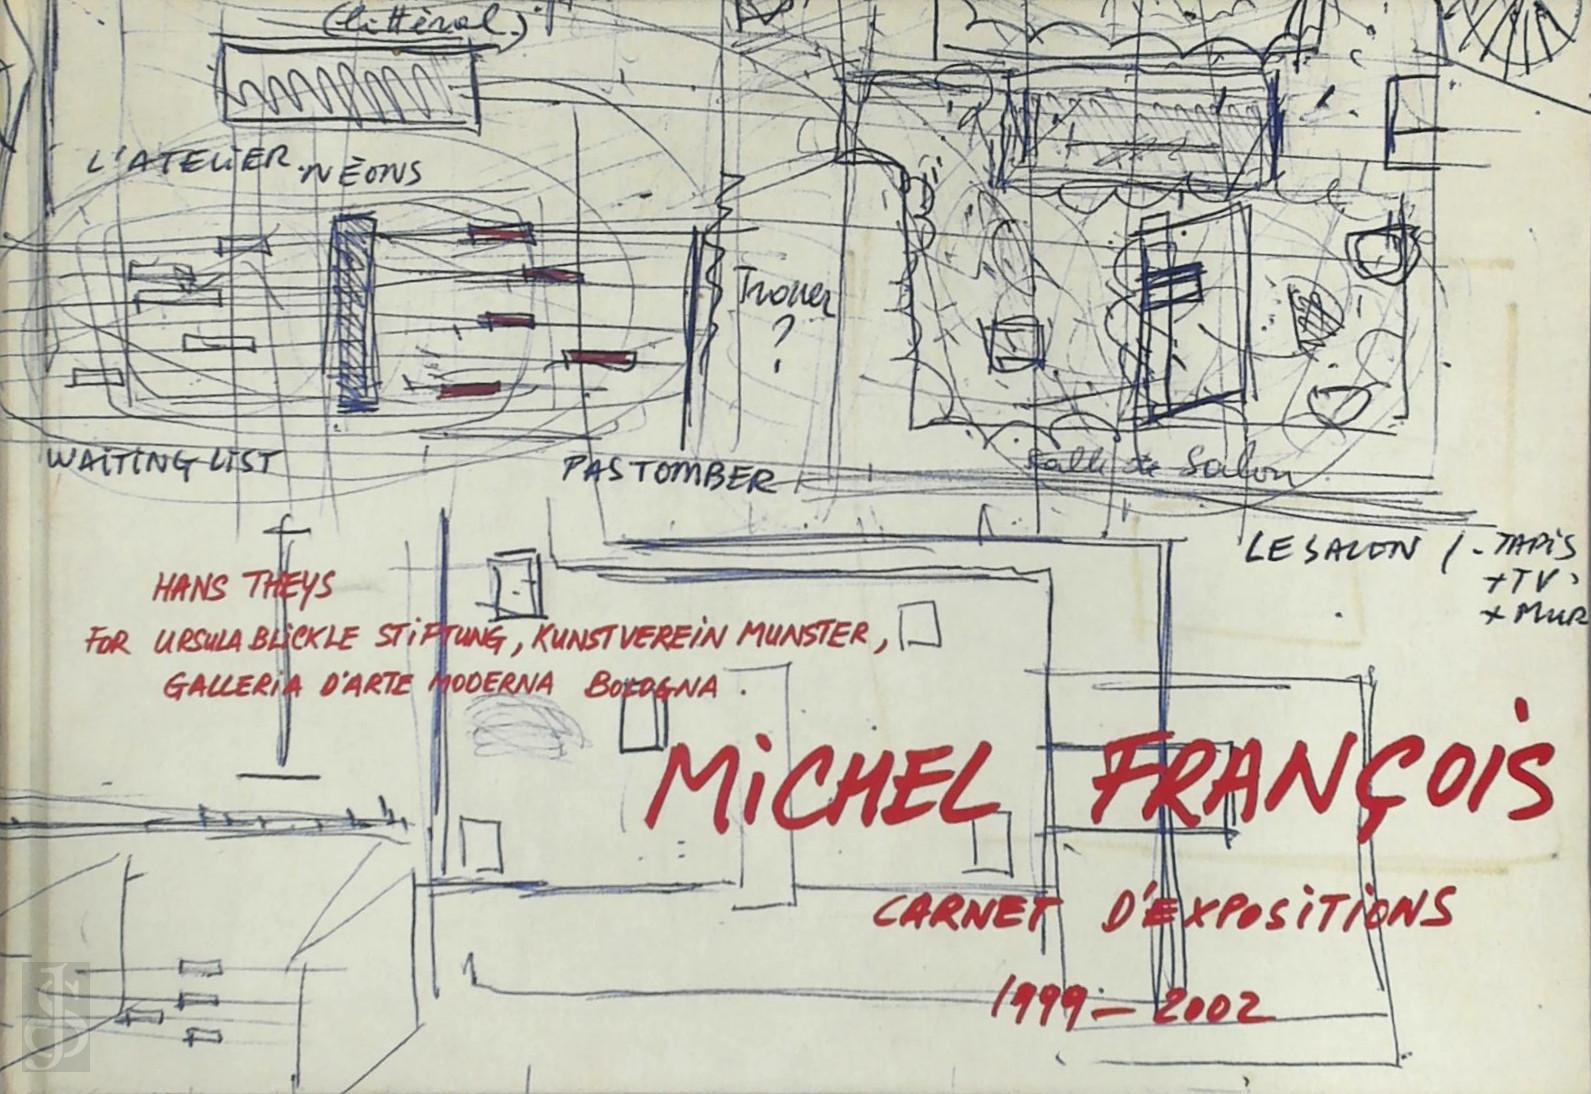 (littéral)
L'ATELIER NÉONS
Trouer
?
WAITING LIST
PAS TOMBER
Salle de Salon
LE SALON / - TAPIS
+ TV
+ MUR
HANS THEYS
FOR URSULA BLICKLE STIFTUNG, KUNSTVEREIN MUNSTER,
GALLERIA D'ARTE MODERNA BOLOGNA.
MICHEL FRANÇOIS
CARNET D'EXPOSITIONS
1999 – 2002